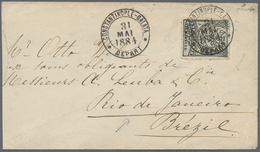 CONSTANTINOPLE-GALATA
31
MAI
1884
DEPART
Mr. Otto
aux soins obligeants de
Messieurs A. Leuba & Cie
Rio de Janeiro
Brézil